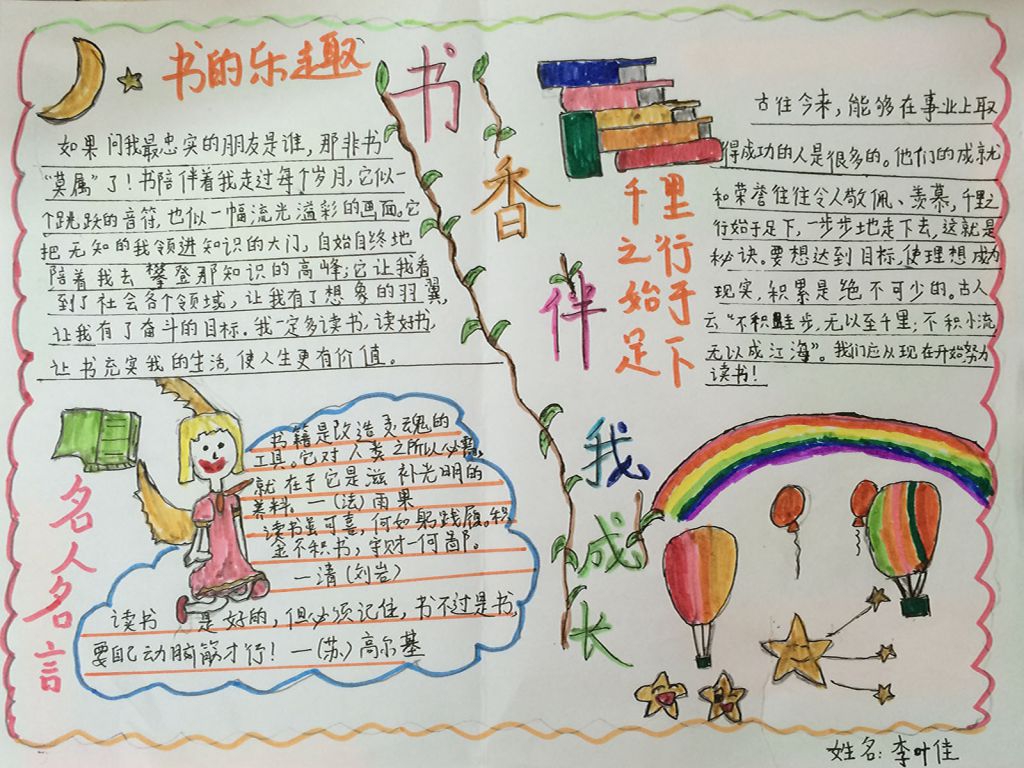 书的乐趣
如果问我最忠实的朋友是谁，那非书
“莫属”了！书陪伴着我走过每个岁月，它似一
个跳跃的音符，也似一幅流光溢彩的画面。它
把无知的我领进知识的大门，自始自终地
陪着我去攀登那知识的高峰；它让我看
到了社会各个领域，让我有了想象的羽翼，
让我有了奋斗的目标。我一定多读书，读好书，
让书充实我的生活，使人生更有价值。
书香伴我成长
千里
之行
始于
足下
古往今来，能够在事业上取
得成功的人是很多的。他们的成就
和荣誉往往令人敬佩、羡慕，千里之
行始于足下，一步步地走下去，这就是
秘诀。要想达到目标，使理想成为
现实，积累是绝不可少的。古人
云“不积跬步，无以至千里；不积小流，
无以成江海”。我们应从现在开始努力
读书！
名人名言
书籍是改造灵魂的
工具。它对人类之所以必需，
就在于它是滋补光明的
养料。—（法）雨果
读书虽可喜，何如躬践履。积
金不积书，守财一何鄙。
—清（刘岩）
读书是好的，但必须记住，书不过是书，
要自己动脑筋才行！—（苏）高尔基
姓名：李叶佳